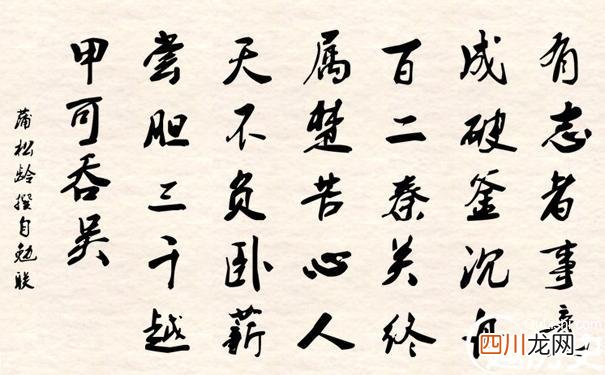 有志者事竟
成破釜沉舟
百二秦关终
属楚苦心人
天不负卧薪
尝胆三千越
甲可吞吴
蒲松龄撰自勉联
四川龙网